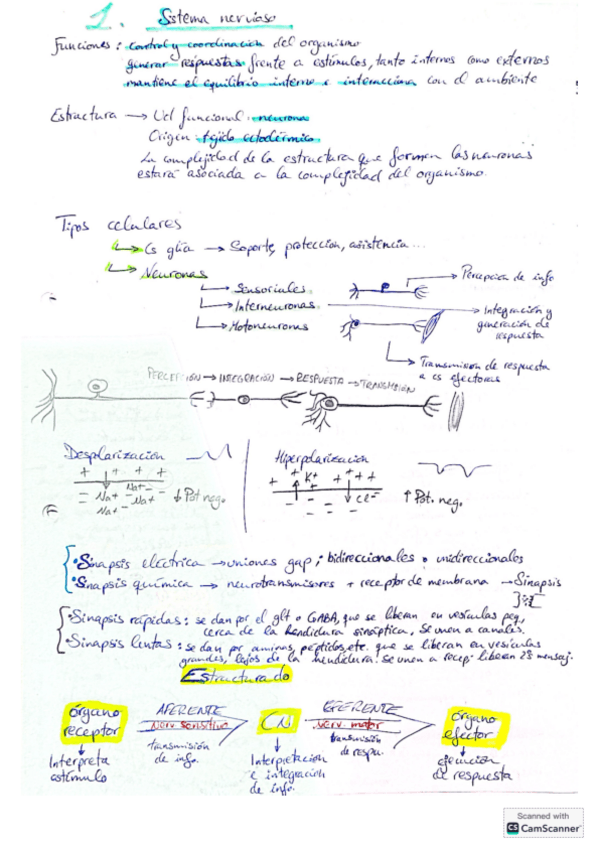 1. Sistema nervioso
Funciones: control y coordinación del organismo
generar respuestas frente a estímulos, tanto internos como externos
mantiene el equilibrio interno e interacciona con el ambiente
Estructura → Ud funcional: neurona
Origen: tejido ectodérmico
La complejidad de la estructura que formen las neuronas
estará asociada a la complejidad del organismo.
Tipos celulares
↳ Cs glía → Soporte, protección, asistencia...
↳ Neuronas
↳ Sensoriales → Percepción de info
↳ Interneuronas → Integración y
generación de
respuesta
↳ Motoneuronas
↳ Transmisión de respuesta
a cs efectoras
PERCEPCIÓN → INTEGRACIÓN → RESPUESTA → TRANSMISIÓN
Despolarización
+ + + +
Na+ Na+ Na+ Na+ ↓ Pot neg.
Hiperpolarización
+ + K+ + + + +
Cl- ↑ Pot. neg.
• Sinapsis eléctrica → uniones gap; bidireccionales o unidireccionales
• Sinapsis química → neurotransmisores + receptor de membrana → Sinapsis
• Sinapsis rápidas: se dan por el glt o GABA, que se liberan en vesículas peq,
cerca de la hendidura sináptica. Se unen a canales.
• Sinapsis lentas: se dan por aminas, péptidos, etc. que se liberan en vesículas
grandes, lejos de la hendidura. Se unen a recep. liberan 2º mensaj.
Estructurado
órgano receptor AFERENTE Nerv sensitivo CN EFERENTE nerv. motor órgano efector
Interpreta estímulo
transmisión de info.
Interpretación e integración de info.
transmisión de respu.
ejecución de respuesta
Scanned with
CS CamScanner